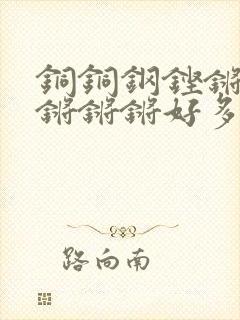 銅銅鋼鏗鏘
鏘鏘鏘好多
路向南